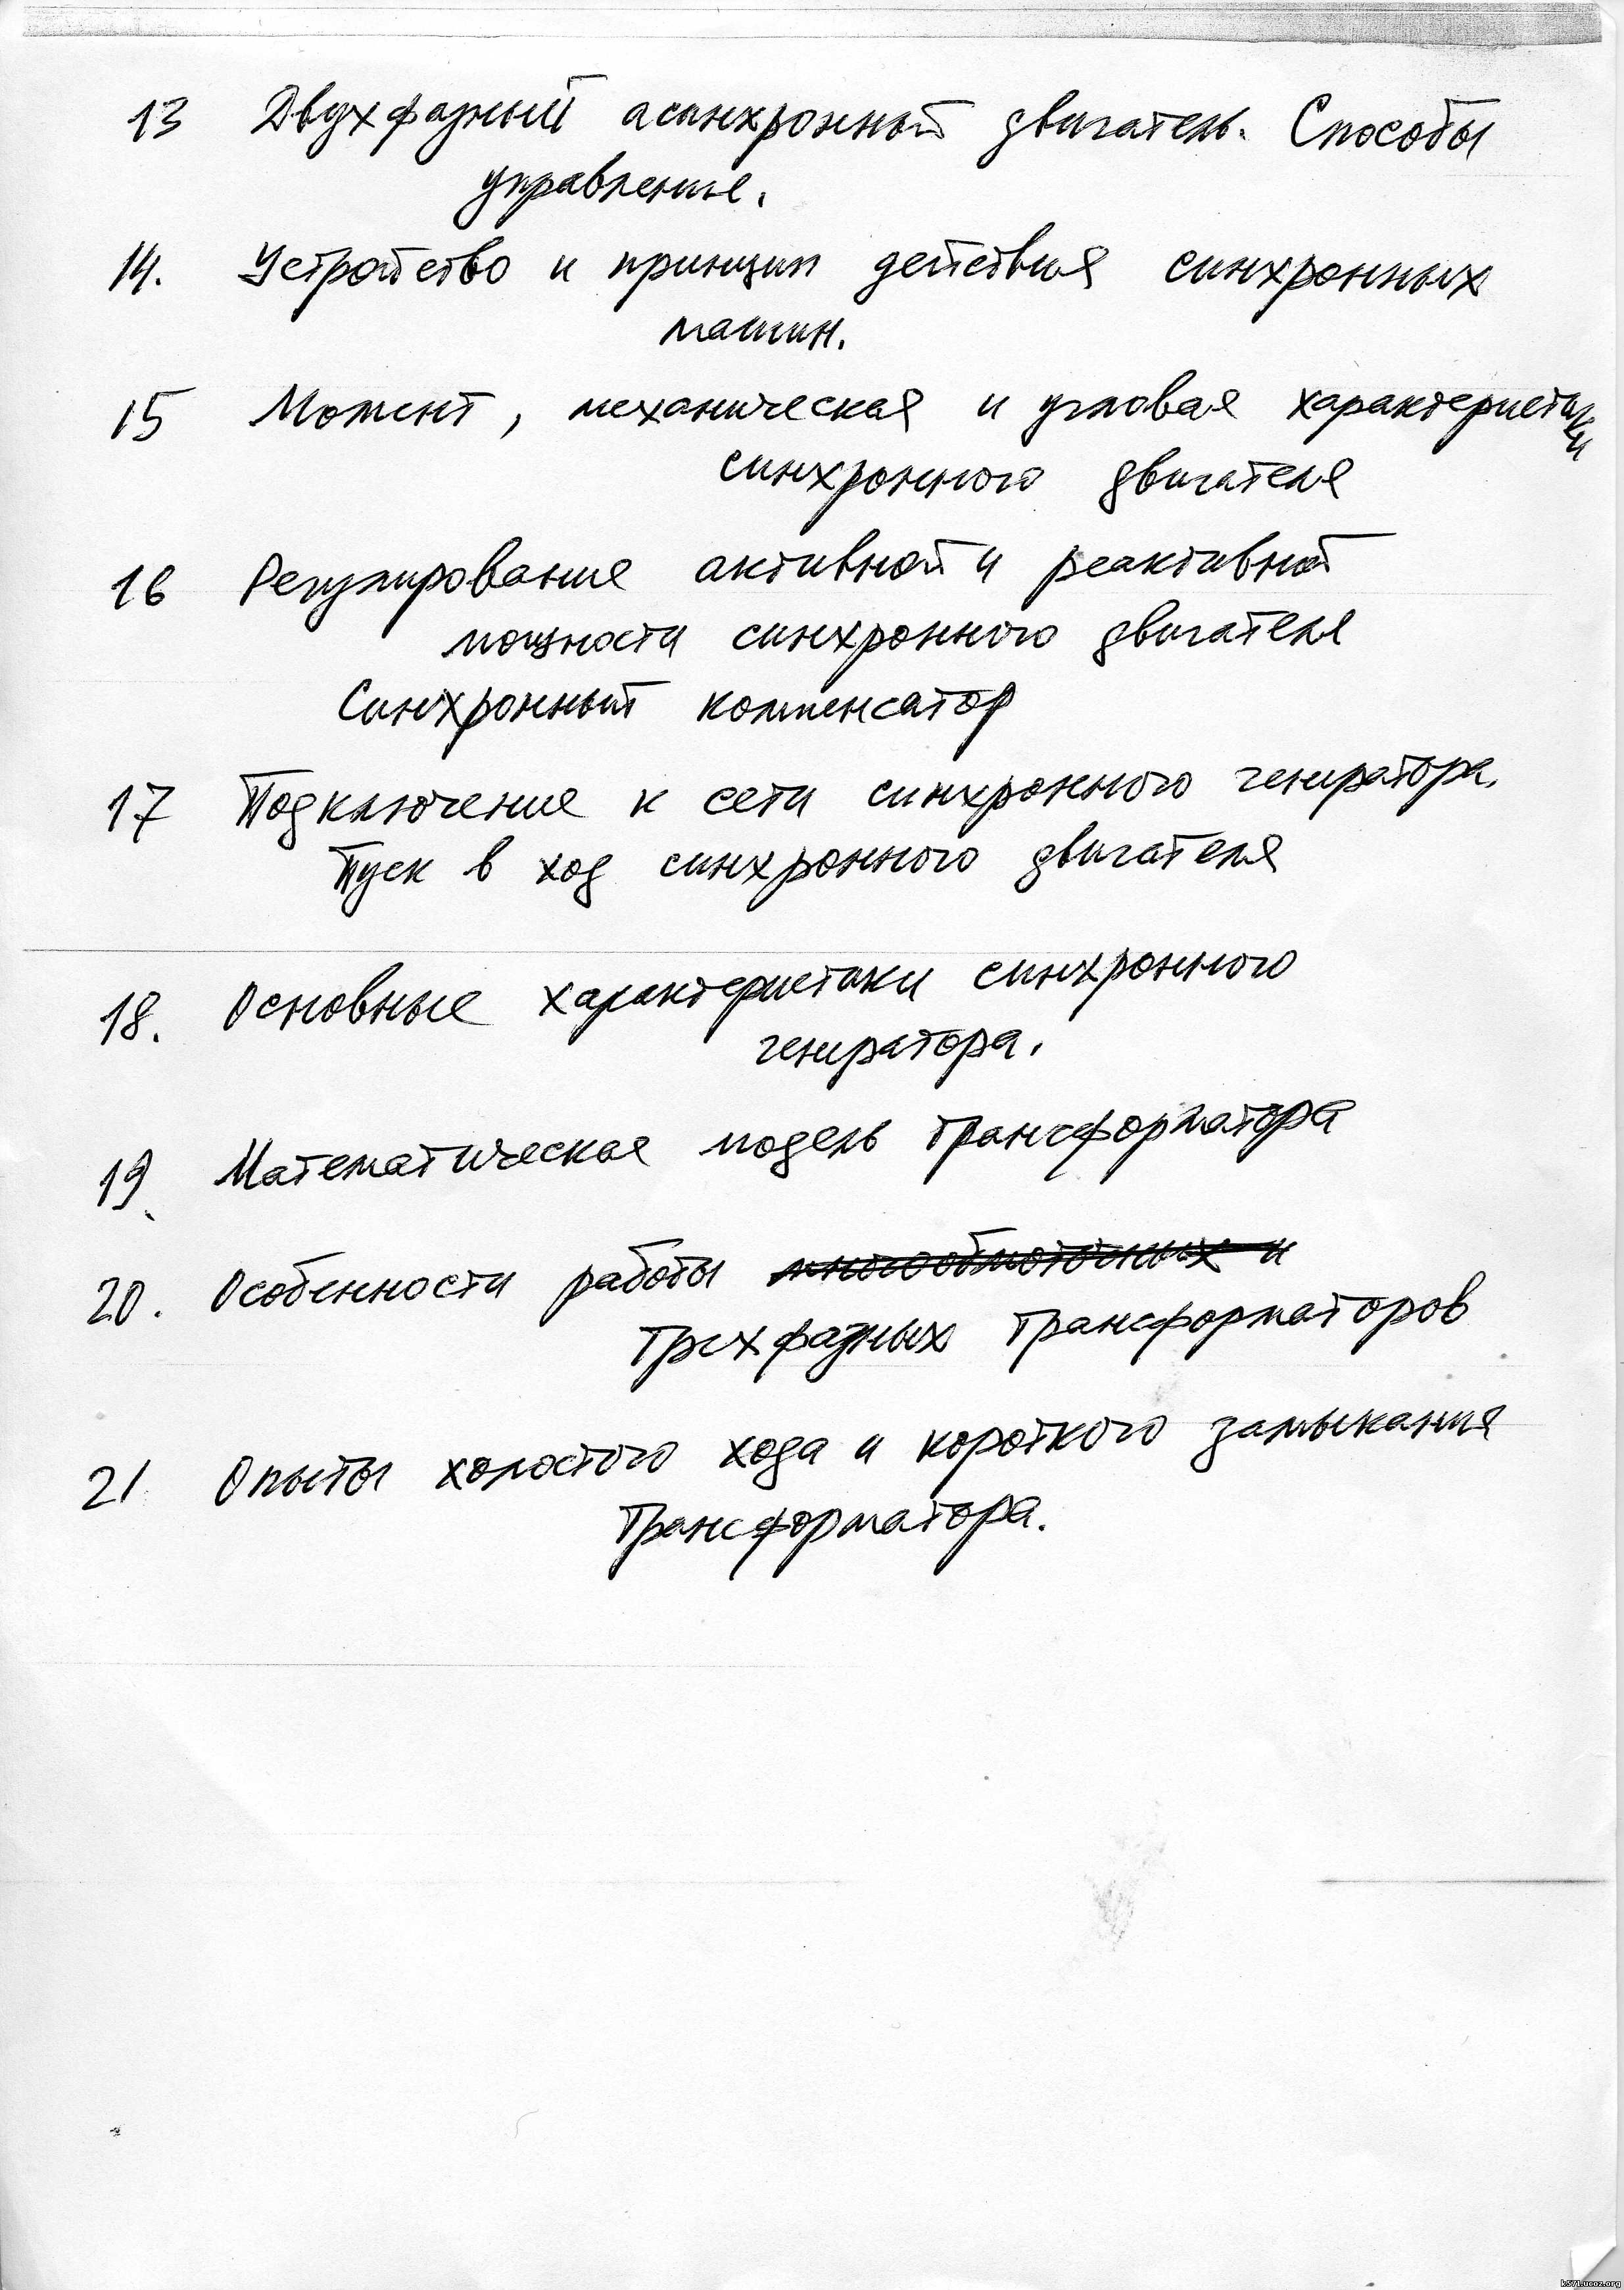 13 Двухфазный асинхронный двигатель. Способы
управления.
14. Устройство и принцип действия синхронных
машин.
15 Момент, механическая и угловая характеристики
синхронного двигателя
16 Регулирование активной и реактивной
мощности синхронного двигателя
Синхронный компенсатор
17 Подключение к сети синхронного генератора.
Пуск в ход синхронного двигателя
18. Основные характеристики синхронного
генератора.
19. Математическая модель трансформатора
20. Особенности работы многообмоточных и
трехфазных трансформаторов
21 Опыты холостого хода и короткого замыкания
трансформатора.
k571.ucoz.org